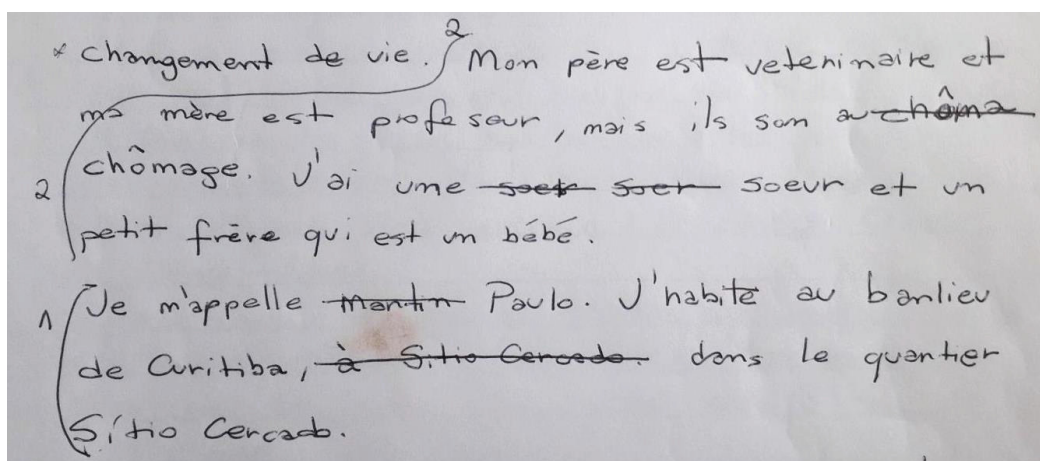 * Changement de vie. 2 Mon père est veterinaire et
ma mère est profeseur, mais ils son au chôma
2 chômage. J'ai une soet soer soeur et un
petit frère qui est un bébé.
1 Je m'appelle Martin Paulo. J'habite au banlieu
de Curitiba, à Sitio Cercado. dans le quartier
Sítio Cercado.